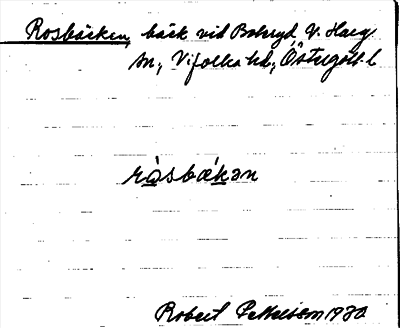 Rosbäcken, bäck vid Bohryd V. Harg
sn, Vifolka hd, Östergötl. l
ròsbækən
Robert Pettersson 1930